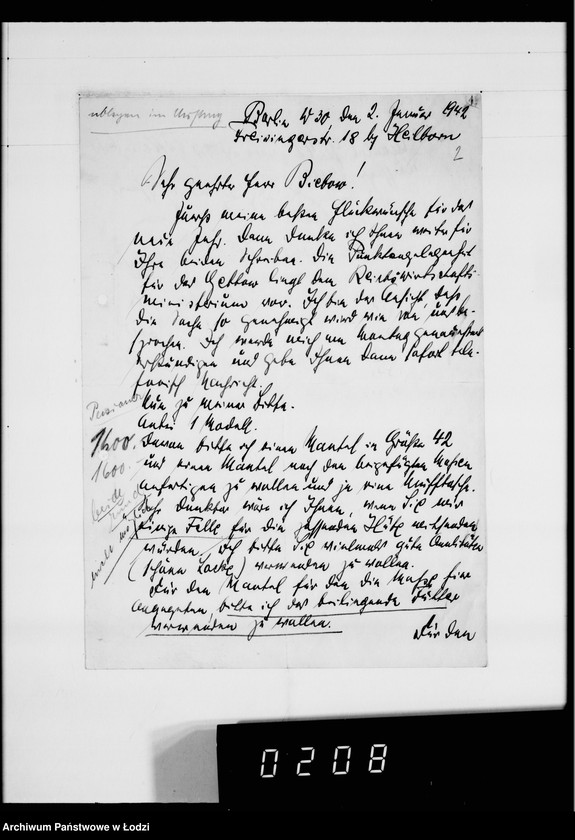 ablegen im Umschlag
Berlin W 30 den 2. Januar 1942
Freisingerstr. 18 bej Heilborn
2
Sehr geehrter Herr Biebow!
Zuerst meine besten Glückwünsche für das
neue Jahr. Dann danke ich Ihnen weiter für
Ihre beiden Schreiben. Die Punktangelegenheit
für das Gettow liegt dem Reichswirtschafts-
ministerium vor. Ich bin der Ansicht, dass
die Sache so genehmigt wird wie von uns be-
sprochen. Ich werde mich am Montag
erkundigen und gebe Ihnen dann sofort tele-
fonisch Nachricht.
Nun zu meiner Bitte.
Anbei 1 Modell.
1400. Davon bitte ich einen Mantel in Größe 42
1600. und einen Mantel nach den beigefügten Massen
anfertigen zu wollen und je eine Mufftasche.
Sehr dankbar wäre ich Ihnen, wenn Sie mir
einige Felle für die passenden Hüte mitsenden
würden. Ich bitte Sie vielmals gute Qualitäten
(schöne Locke) verwenden zu wollen.
Für den Mantel für den die Masse hier
angegeben, bitte ich das beiliegende Futter
verwenden zu wollen.
Für den
0208
Archiwum Państwowe w Łodzi